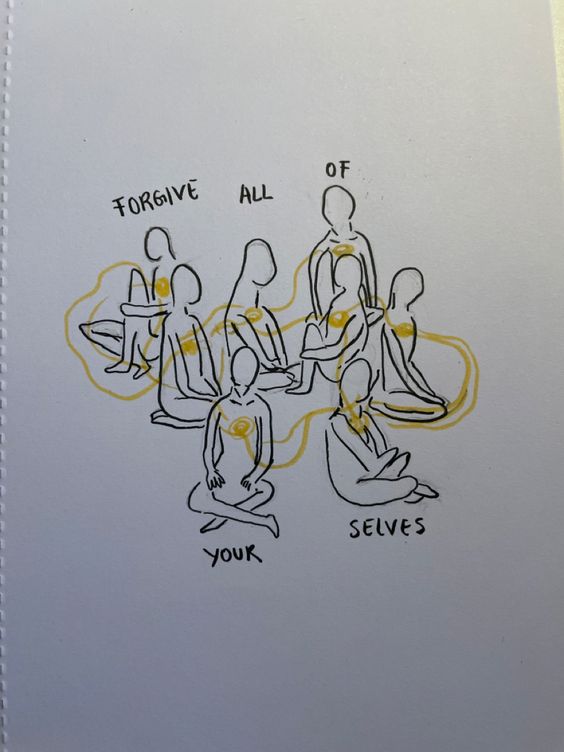 FORGIVE ALL OF
YOUR SELVES